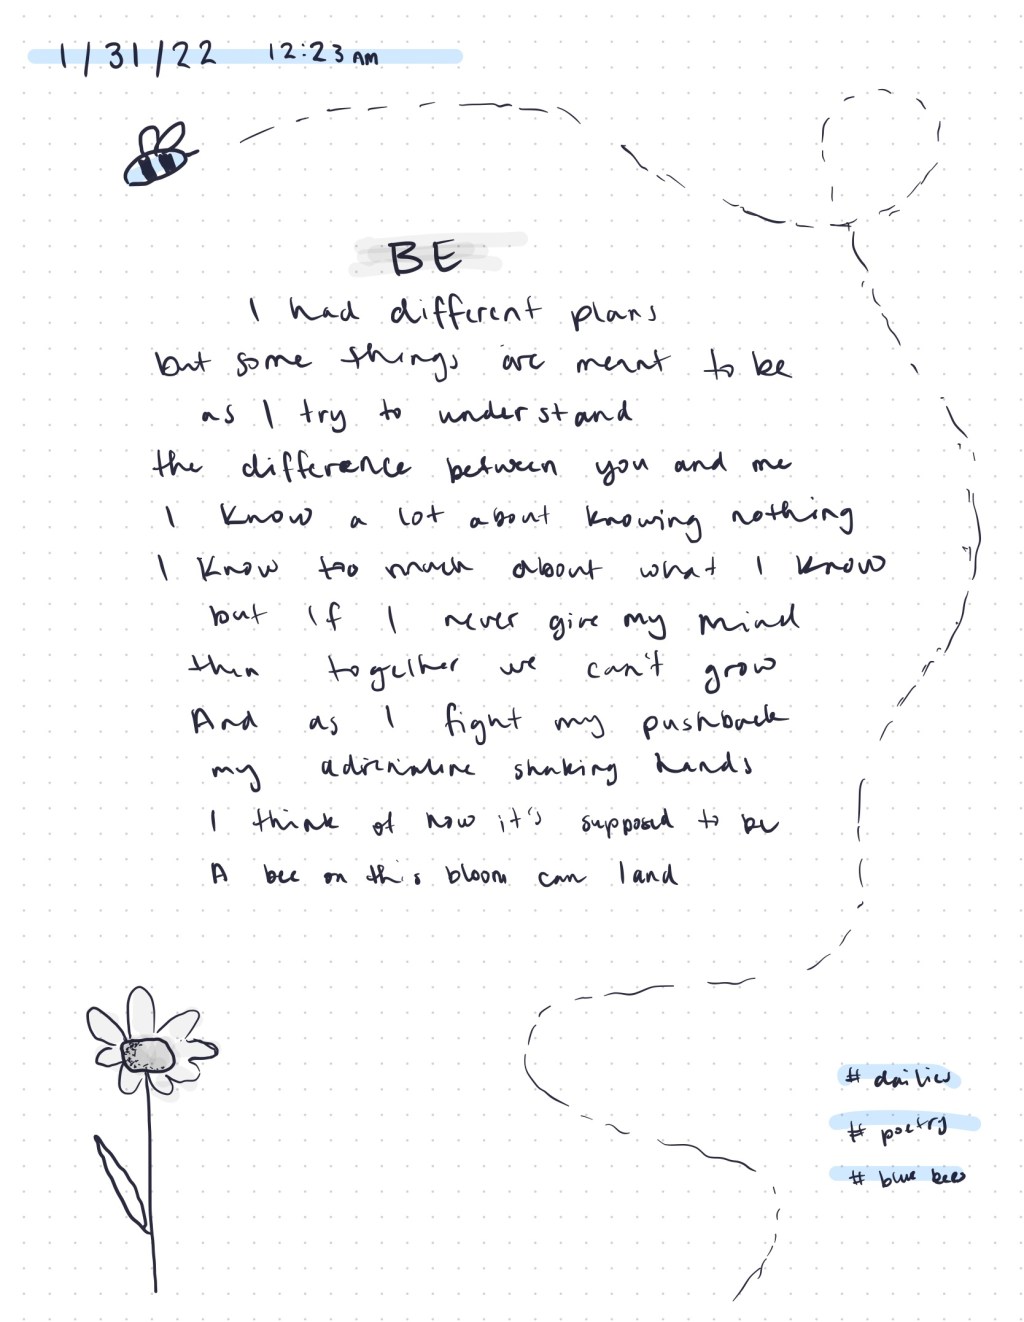 1/31/22 12:23 AM
BE
I had different plans
but some things are meant to be
as I try to understand
the difference between you and me
I know a lot about knowing nothing
I know too much about what I know
but if I never give my mind
then together we can't grow
And as I fight my pushback
my adrenaline shaking hands
I think of how it's supposed to be
A bee on this bloom can land
# dailies
# poetry
# blue bees